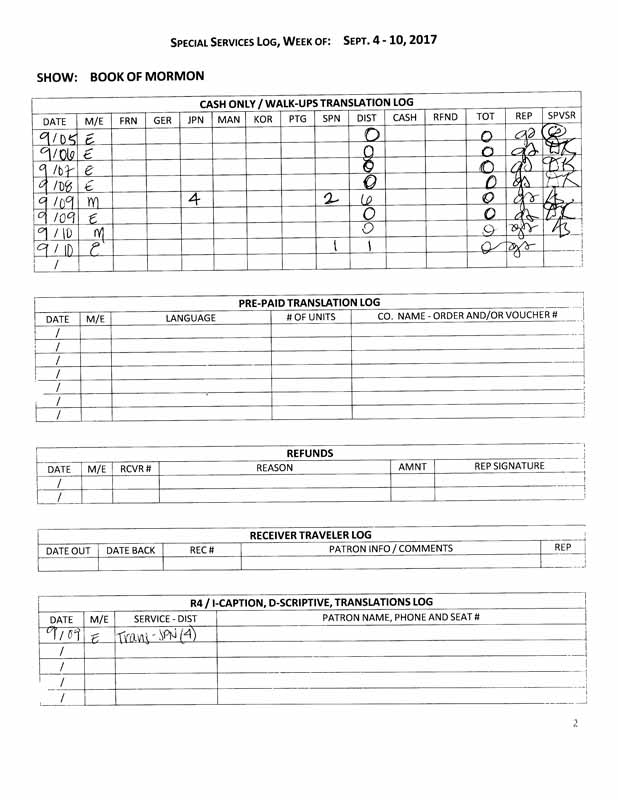 SPECIAL SERVICES LOG, WEEK OF: SEPT. 4 - 10, 2017
SHOW: BOOK OF MORMON
CASH ONLY / WALK-UPS TRANSLATION LOG
DATE M/E FRN GER JPN MAN KOR PTG SPN DIST CASH RFND TOT REP SPVSR
9/05 E 0 0 gs
9/06 E 0 0 gs
9/07 E 0 0 gs
9/08 E 0 0 gs
9/09 M 4 2 6 0 gs
9/09 E 0 0 gs
9/10 M 0 0 gs
9/10 E 1 1 0 gs
/
PRE-PAID TRANSLATION LOG
DATE M/E LANGUAGE # OF UNITS CO. NAME - ORDER AND/OR VOUCHER #
/
/
/
/
/
/
/
REFUNDS
DATE M/E RCVR # REASON AMNT REP SIGNATURE
/
/
RECEIVER TRAVELER LOG
DATE OUT DATE BACK REC # PATRON INFO / COMMENTS REP
R4 / I-CAPTION, D-SCRIPTIVE, TRANSLATIONS LOG
DATE M/E SERVICE - DIST PATRON NAME, PHONE AND SEAT #
9/09 E Trans-JPN (4)
/
/
/
/
2